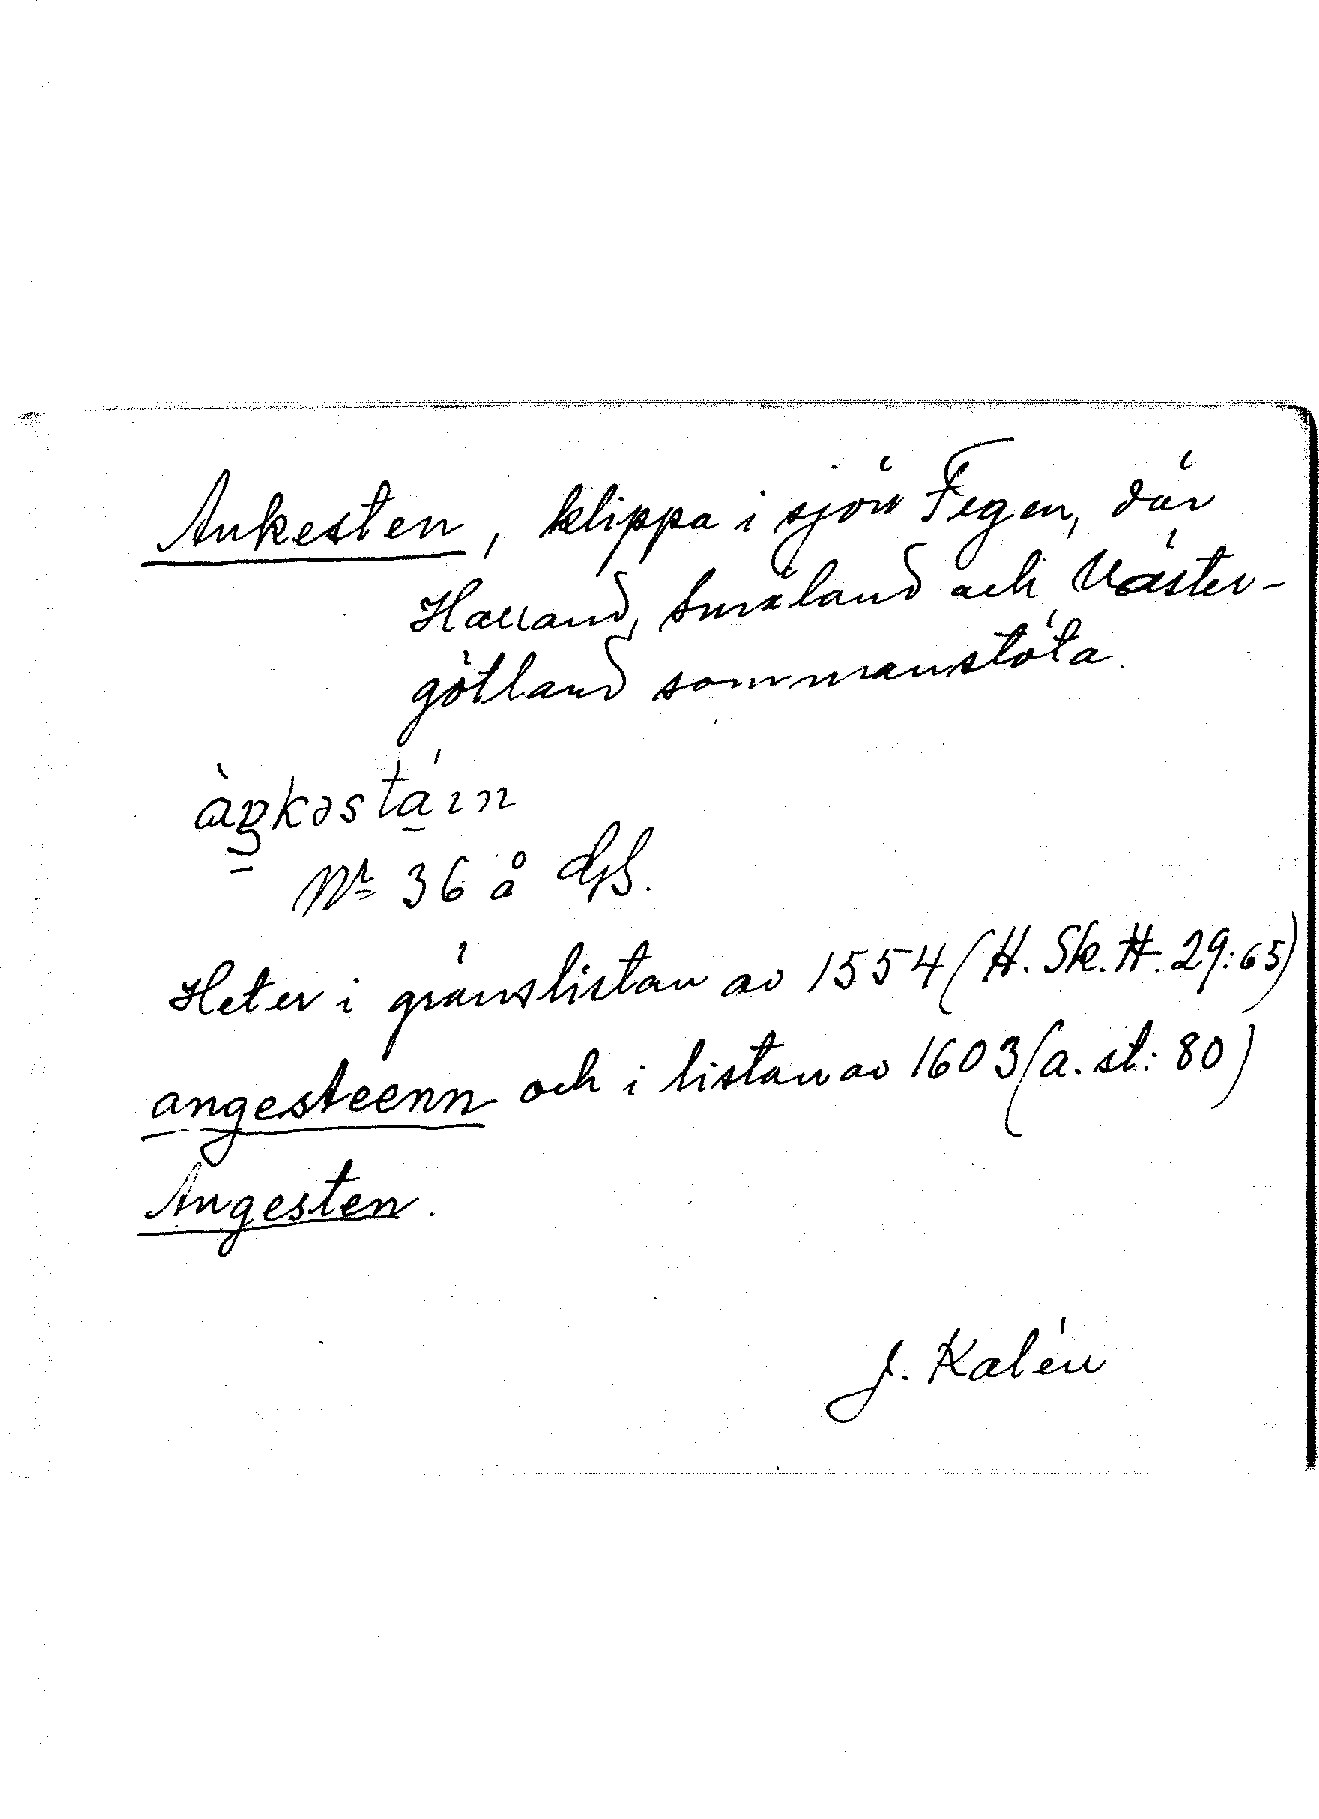 Ankesten, klippa i sjön Fegen, där
Halland, Småland och Väster-
götland sammanstöta.
àŋkəstáın
Nr 36 å
Heter i gränslistan av 1554 (H. Sk. H. 29:65)
angesteenn och i listan av 1603 (a. st: 80)
Angesten.
J. Kalén